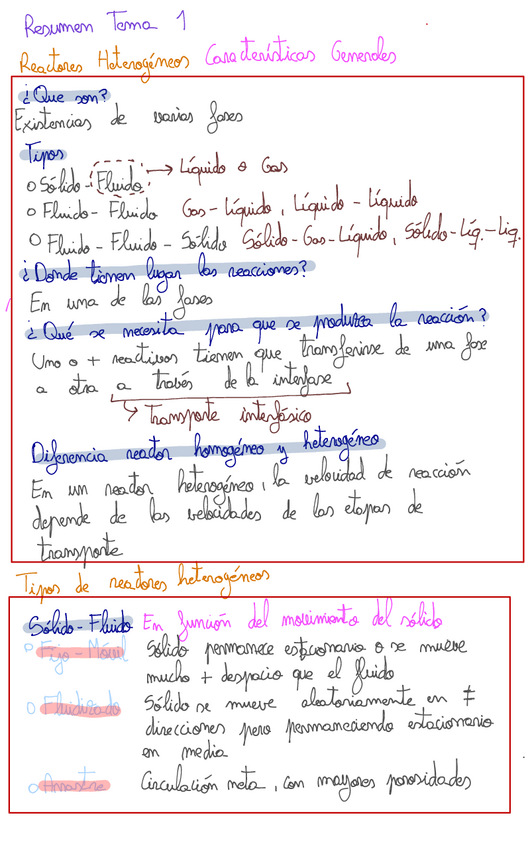 Resumen Tema 1
Reactores Heterogéneos Características Generales
¿Que son?
Existencias de varias fases
Tipos
o Sólido-Fluido → Líquido o Gas
o Fluido-Fluido Gas-Líquido, Líquido-Líquido
o Fluido-Fluido-Sólido Sólido-Gas-Líquido, Sólido-Líq.-Liq.
¿Donde tienen lugar las reacciones?
En una de las fases
¿Qué se necesita para que se produzca la reacción?
Uno o + reactivos tienen que transferirse de una fase
a otra a través de la interfase
→ Transporte interfásico
Diferencia reactor homogéneo y heterogéneo
En un reactor heterogéneo, la velocidad de reacción
depende de las velocidades de las etapas de
transporte
Tipos de reactores heterogéneos
Sólido-Fluido En función del movimiento del sólido
o Fijo-Móvil Sólido permanece estacionario o se mueve
mucho + despacio que el fluido
o Fluidizado Sólido se mueve aleatoriamente en ≠
direcciones pero permaneciendo estacionario
en media
o Arrastre Circulación neta, con mayores porosidades